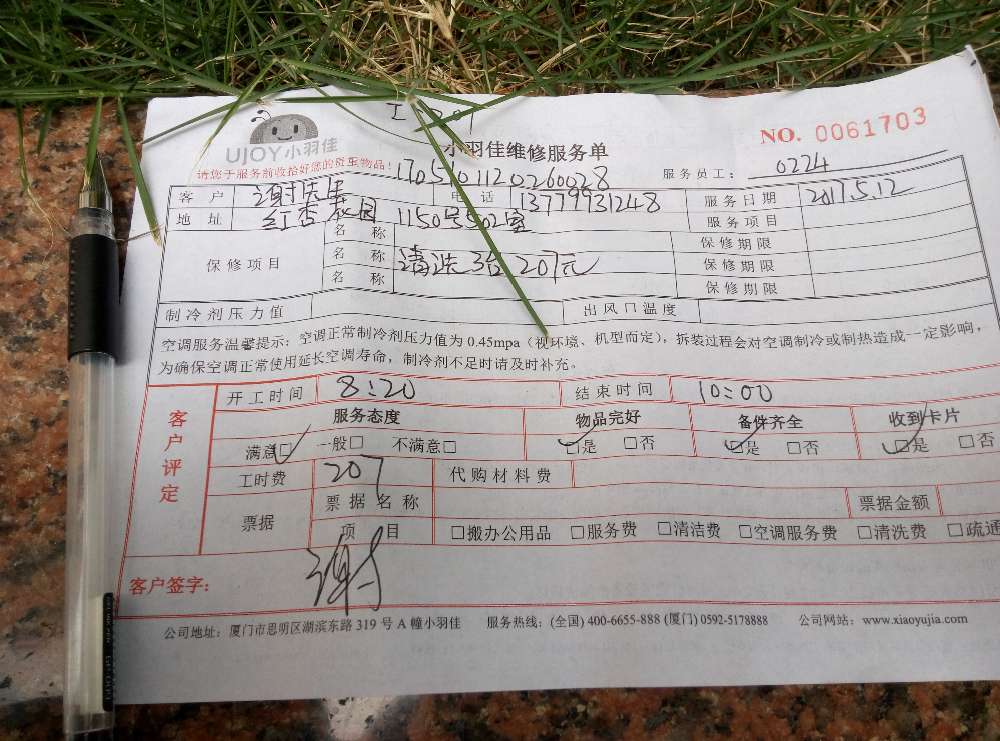 UJOY小羽佳
请您于服务前收拾好您的贵重物品!
小羽佳维修服务单
NO. 0061703
1705101120260028
服务员工: 0224
客户 谢先生 电话 13779931248 服务日期 2017.5.12
地址 红杏花园 1150号502室 服务项目
保修项目 名称 保修期限
名称 清洗3台 207元 保修期限
名称 保修期限
制冷剂压力值 出风口温度
空调服务温馨提示:空调正常制冷剂压力值为 0.45mpa(视环境、机型而定),拆装过程会对空调制冷或制热造成一定影响,
为确保空调正常使用延长空调寿命,制冷剂不足时请及时补充。
客户评定
开工时间 8:20 结束时间 10:00
服务态度 物品完好 备件齐全 收到卡片
满意□ 一般□ 不满意□ □是 □否 □是 □否 □是 □否
工时费 207 代购材料费
票据 票据名称 票据金额
项目 □搬办公用品 □服务费 □清洁费 □空调服务费 □清洗费 □疏通
客户签字: 谢
公司地址:厦门市思明区湖滨东路 319 号 A 幢小羽佳 服务热线:(全国) 400-6655-888 (厦门) 0592-5178888 公司网站:www.xiaoyujia.com